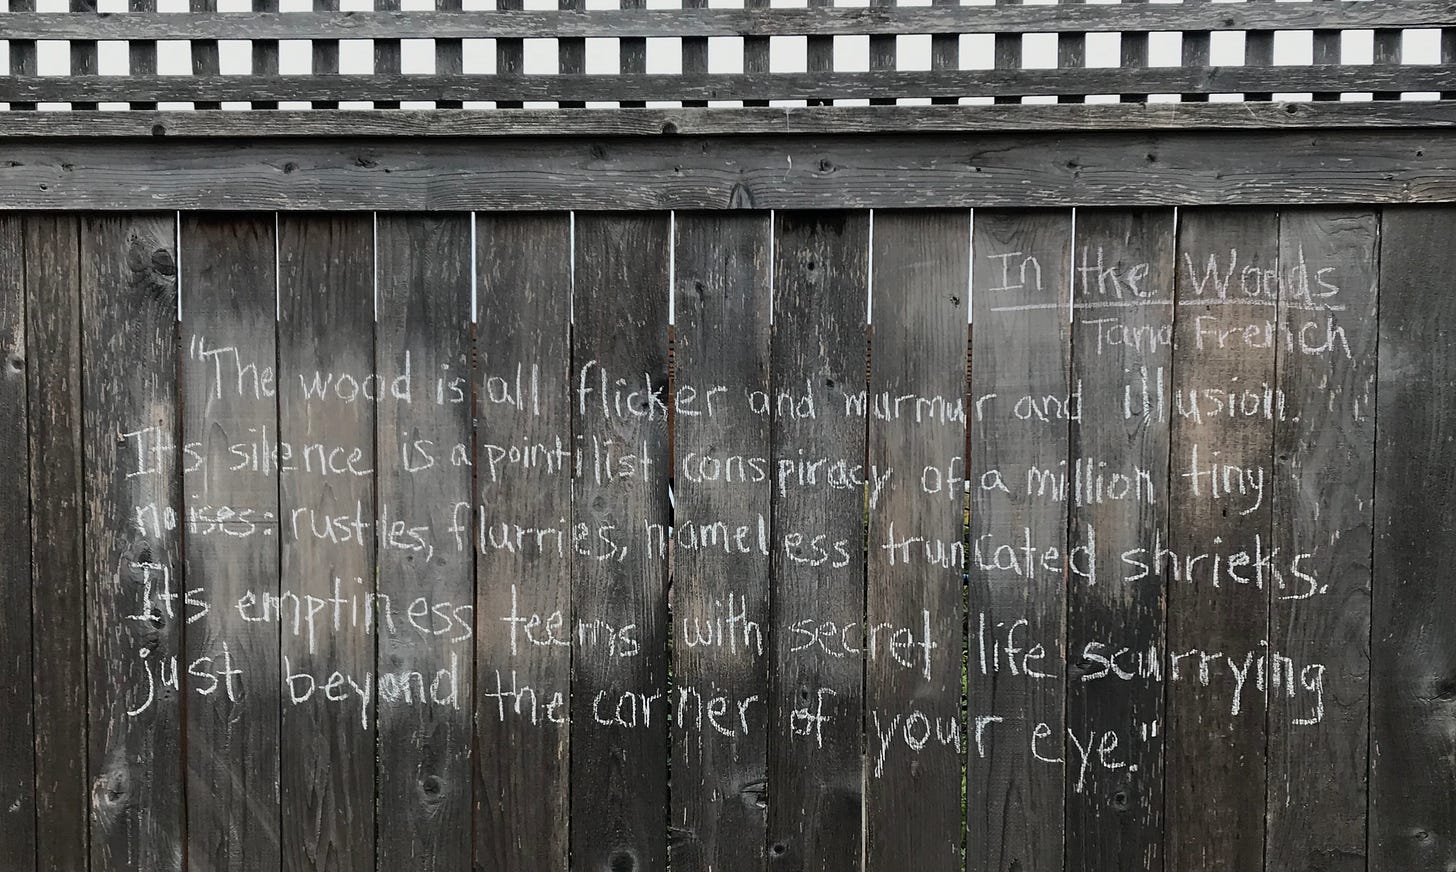 In the Woods
Tana French
"The wood is all flicker and murmur and illusion.
Its silence is a pointilist conspiracy of a million tiny
noises: rustles, flurries, nameless truncated shrieks."
Its emptiness teems with secret life scurrying
just beyond the corner of your eye."